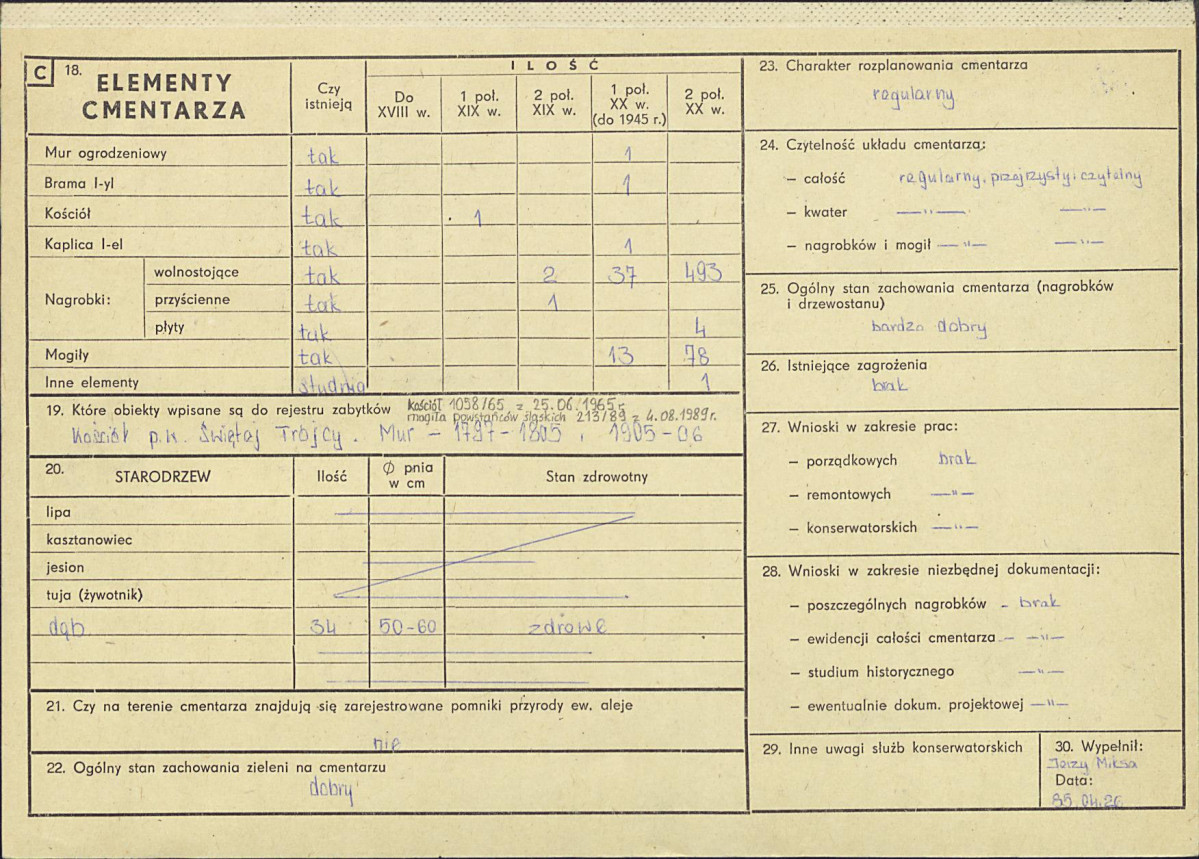 C 18. ELEMENTY CMENTARZA Czy istnieją I L O Ś Ć
Do XVIII w. 1 poł. XIX w. 2 poł. XIX w. 1 poł. XX w. (do 1945 r.) 2 poł. XX w.
Mur ogrodzeniowy tak 1
Brama I-yl tak 1
Kościół tak 1
Kaplica I-el tak 1
Nagrobki: wolnostojące tak 2 37 493
przyścienne tak 1
płyty tak 4
Mogiły tak 13 78
Inne elementy studnia 1
19. Które obiekty wpisane są do rejestru zabytków Kościół 1058/65 z 25.06.1965 r.
mogiła powstańców śląskich 213/89 z 4.08.1989 r.
Kościół p.w. Świętej Trójcy. Mur – 1797-1805, 1905-06
20. STARODRZEW Ilość Ø pnia w cm Stan zdrowotny
lipa
kasztanowiec
jesion
tuja (żywotnik)
dąb 34 50-60 zdrowe
21. Czy na terenie cmentarza znajdują się zarejestrowane pomniki przyrody ew. aleje
nie
22. Ogólny stan zachowania zieleni na cmentarzu
dobry
23. Charakter rozplanowania cmentarza
regularny
24. Czytelność układu cmentarza:
– całość regularny, przejrzysty i czytelny
– kwater —"— —"—
– nagrobków i mogił —"— —"—
25. Ogólny stan zachowania cmentarza (nagrobków
i drzewostanu)
bardzo dobry
26. Istniejące zagrożenia
brak
27. Wnioski w zakresie prac:
– porządkowych brak
– remontowych —"—
– konserwatorskich —"—
28. Wnioski w zakresie niezbędnej dokumentacji:
– poszczególnych nagrobków - brak
– ewidencji całości cmentarza - —"—
– studium historycznego —"—
– ewentualnie dokum. projektowej —"—
29. Inne uwagi służb konserwatorskich
30. Wypełnił:
Jerzy Miksa
Data:
85.04.26